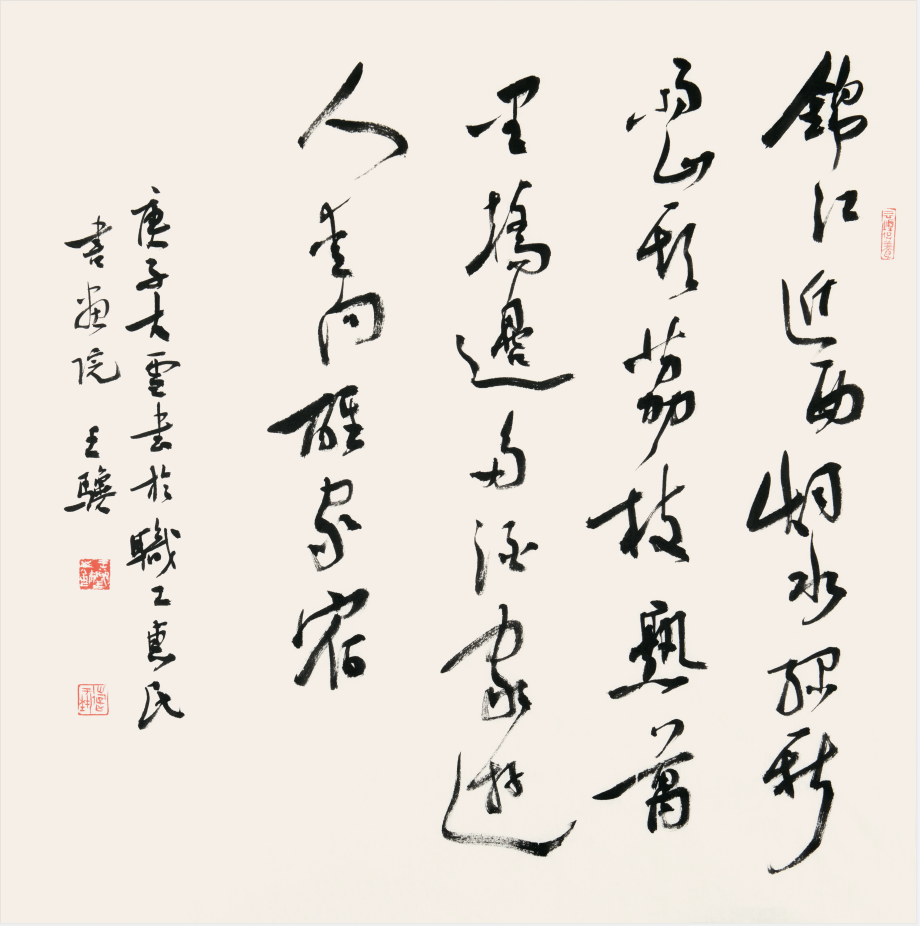 錦江近西烟水綠新
雨山頭荔枝熟萬
里橋邊多酒家遊
人愛向誰家宿
庚子大雪書於職工惠民
書畫院 王驥